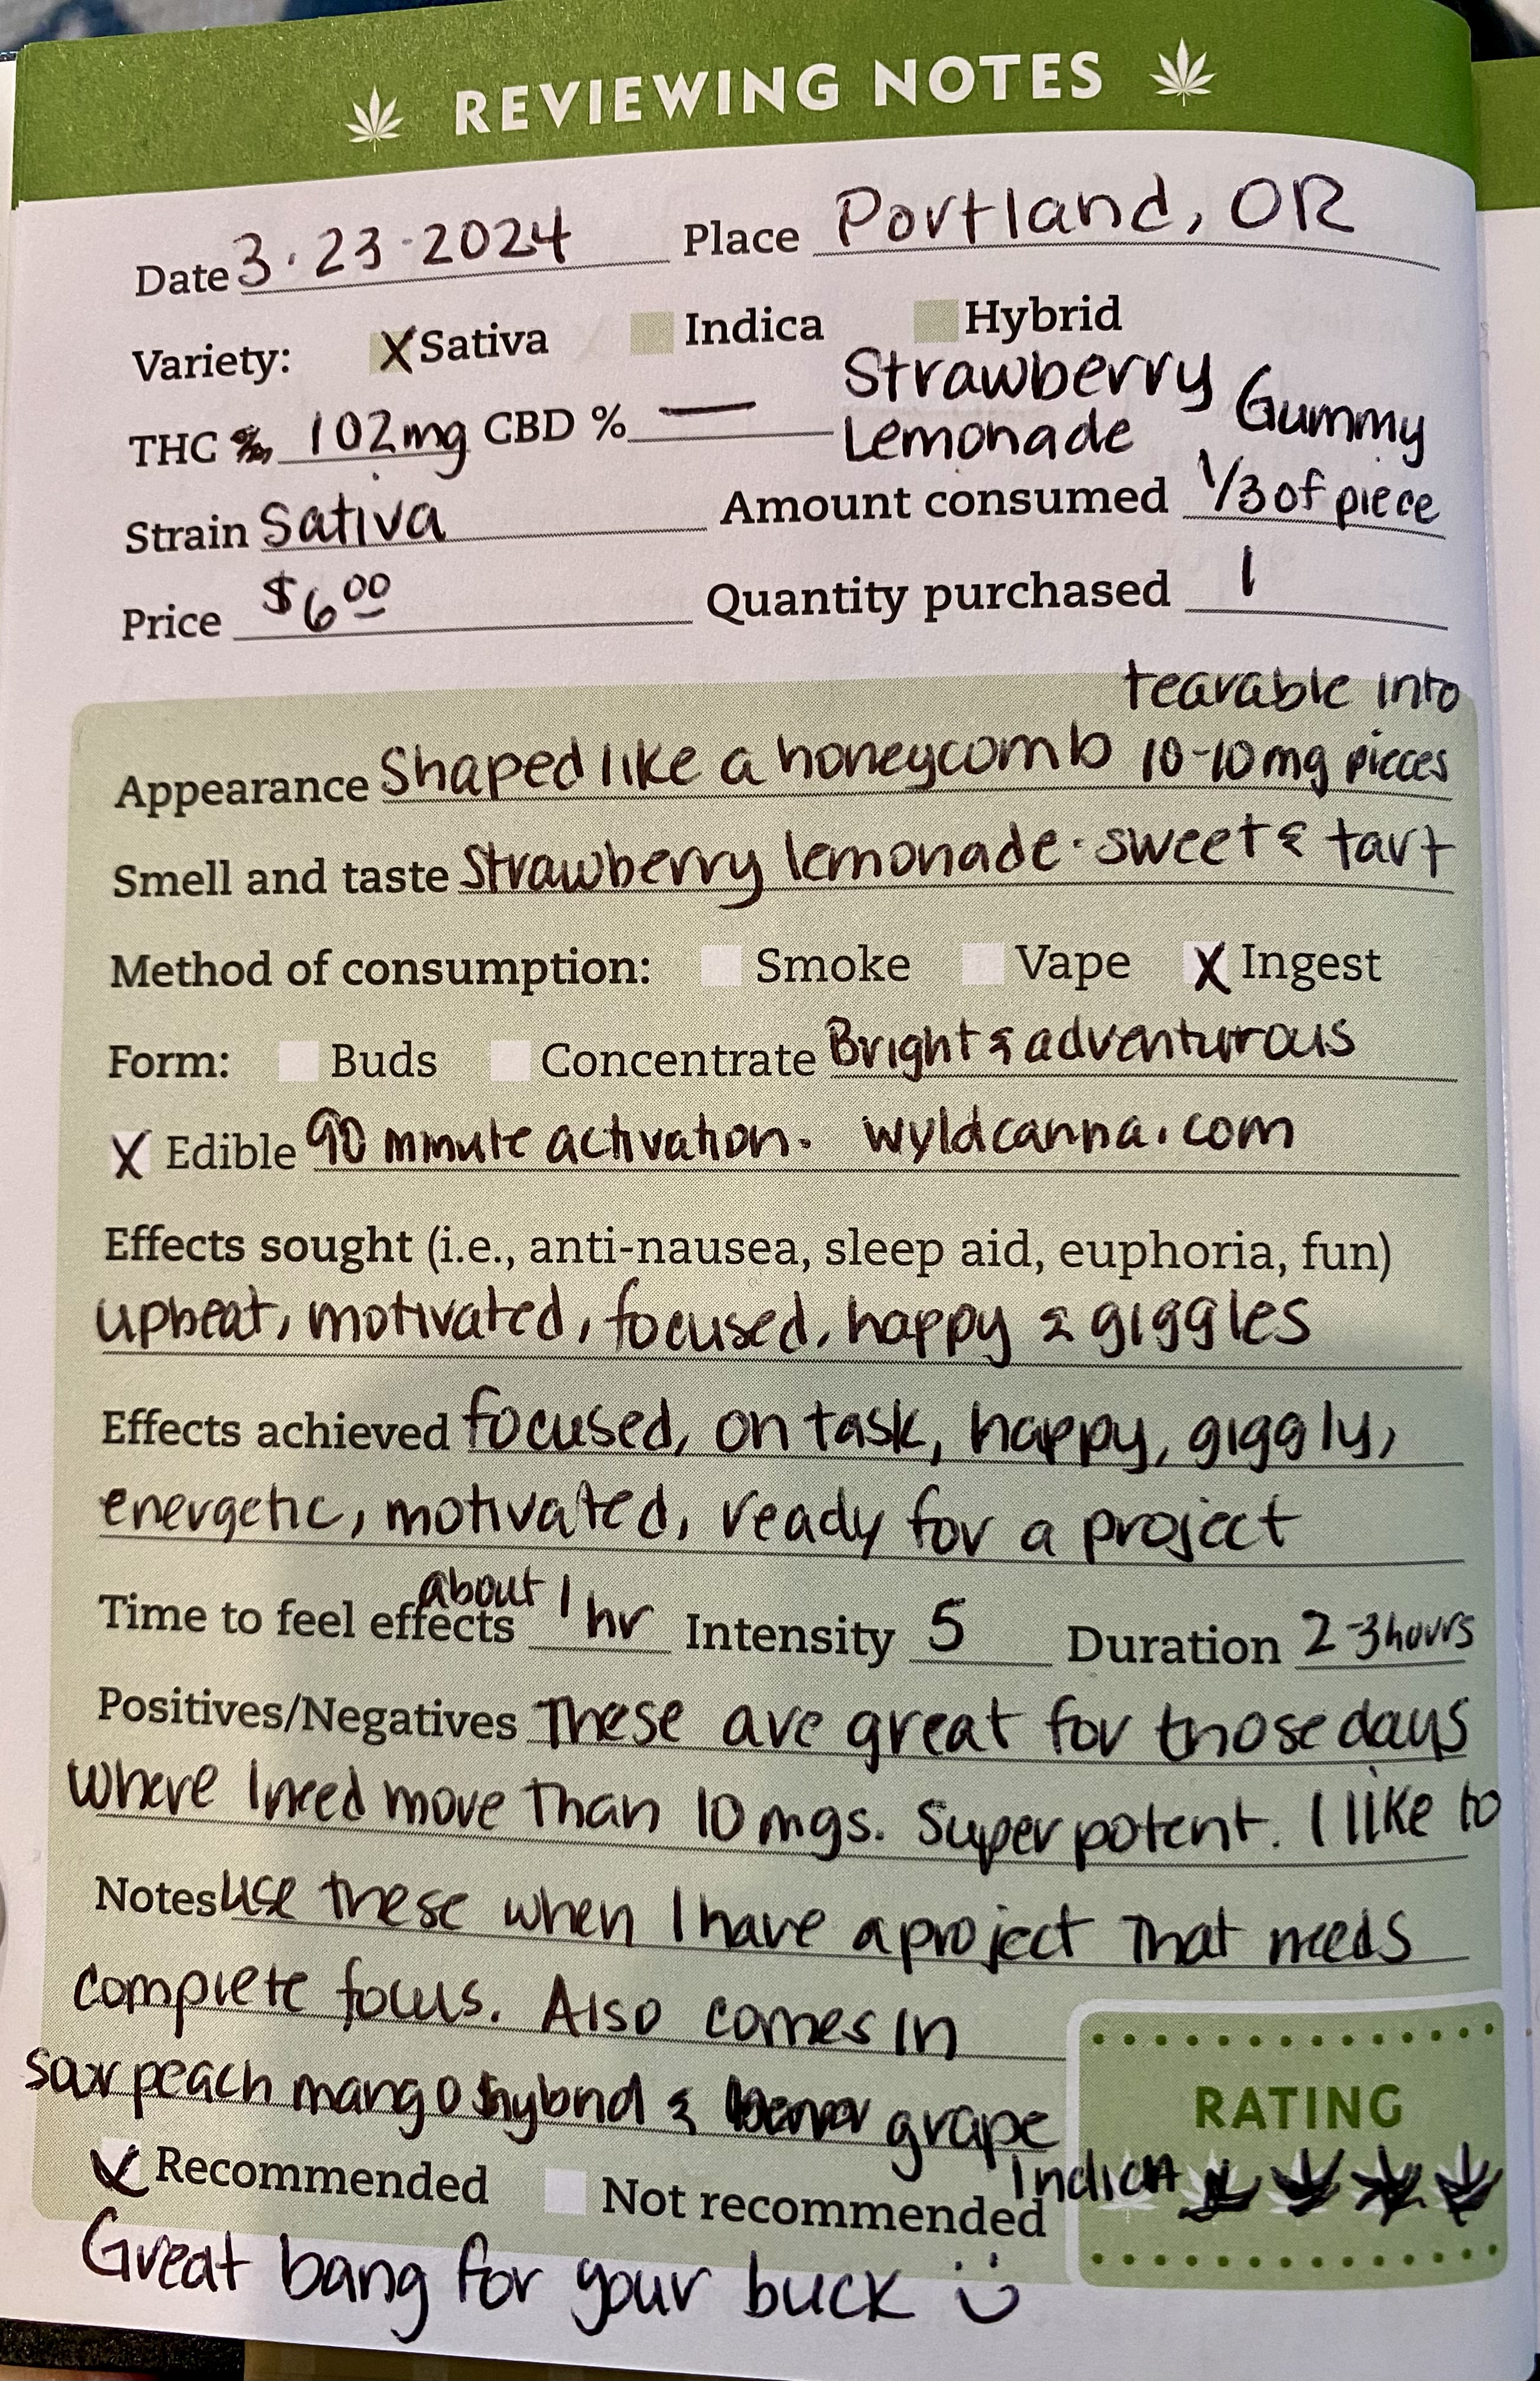 REVIEWING NOTES
Date 3·23·2024 Place Portland, OR
Variety: X Sativa Indica Hybrid
Strawberry Gummy
THC % 102mg CBD % — Lemonade
Strain Sativa Amount consumed 1/3 of piece
Price $6.00 Quantity purchased 1
tearable into
Appearance Shaped like a honeycomb 10-10mg pieces
Smell and taste Strawberry lemonade · sweet & tart
Method of consumption: Smoke Vape X Ingest
Form: Buds Concentrate Bright & adventurous
X Edible 90 minute activation. wyldcanna.com
Effects sought (i.e., anti-nausea, sleep aid, euphoria, fun)
upbeat, motivated, focused, happy & giggles
Effects achieved focused, on task, happy, giggly,
energetic, motivated, ready for a project
Time to feel effects about 1 hr Intensity 5 Duration 2-3 hours
Positives/Negatives These are great for those days
where I need more than 10 mgs. Super potent. I like to
Notes use these when I have a project that needs
complete focus. Also comes in
sour peach mango hybrid & grape
RATING
Indica
Recommended Not recommended
Great bang for your buck